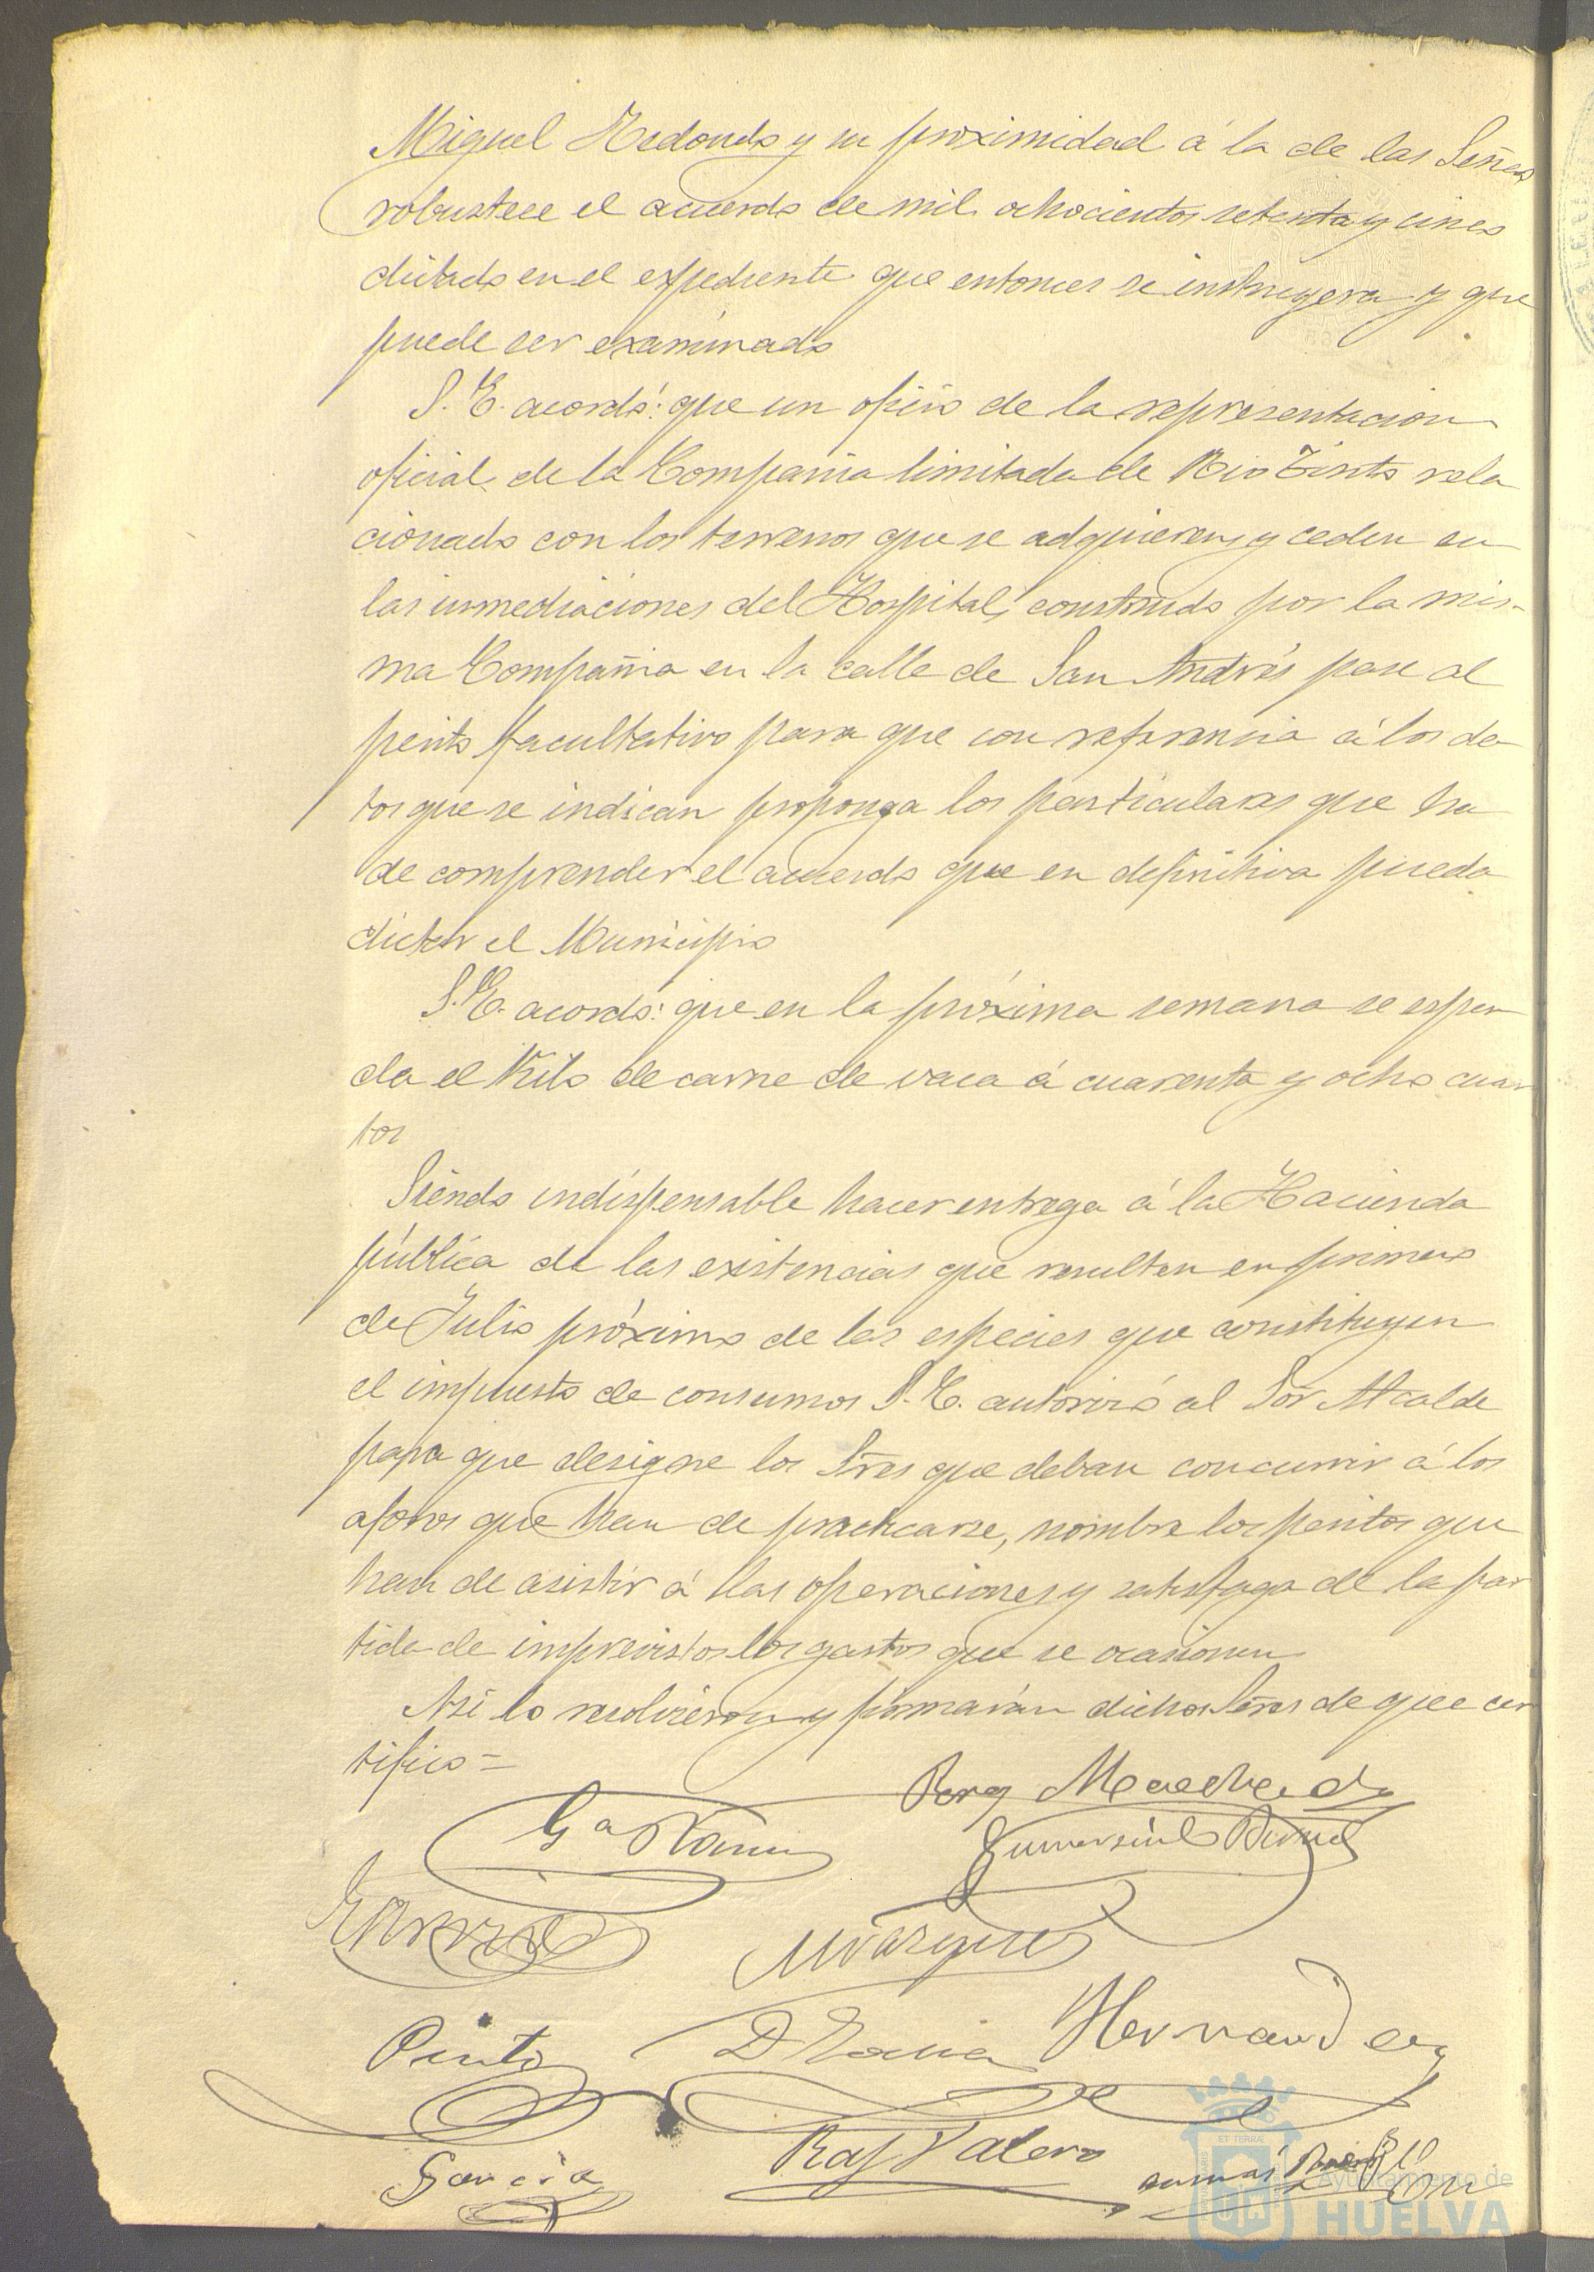 Miguel Redondo y su proximidad á la de las Señas
robustece el acuerdo de mil ochocientos setenta y cinco
dictado en el expediente que entonces se instruyera y que
puede ser examinado
S. E. acordó: que un oficio de la representacion
oficial de la Compañia limitada de Rio Tinto rela
cionado con los terrenos que se adquieren y ceden en
las inmediaciones del Hospital, construido por la mis-
ma Compañia en la calle de San Andrés pase al
perito facultativo para que con referencia á los da
tos que se indican proponga los particulares que ha
de comprender el acuerdo que en definitiva pueda
dictar el Municipio
S. E. acordó: que en la próxima semana se espen
da el Kilo de carne de vaca á cuarenta y ocho cuar
tos
Siendo indispensable hacer entrega á la Hacienda
pública de las existencias que resulten en primero
de Julio próximo de las especies que constituyen
el impuesto de consumos S. E. autorizó al Sor Alcalde
para que designe los Sres que deban concurrir á los
aforos que han de practicarse, nombre los peritos que
han de asistir á las operaciones y satisfaga de la par
tida de imprevistos los gastos que se ocasionen
Asi lo resolvieron y firmarán dichos Sres de que cer
tifico=
Machado
Gª Rami
Gumersindo
Vazquez
Pinto
Hernandez
Garcia
Raf Valero
Ayuntamiento de
HUELVA